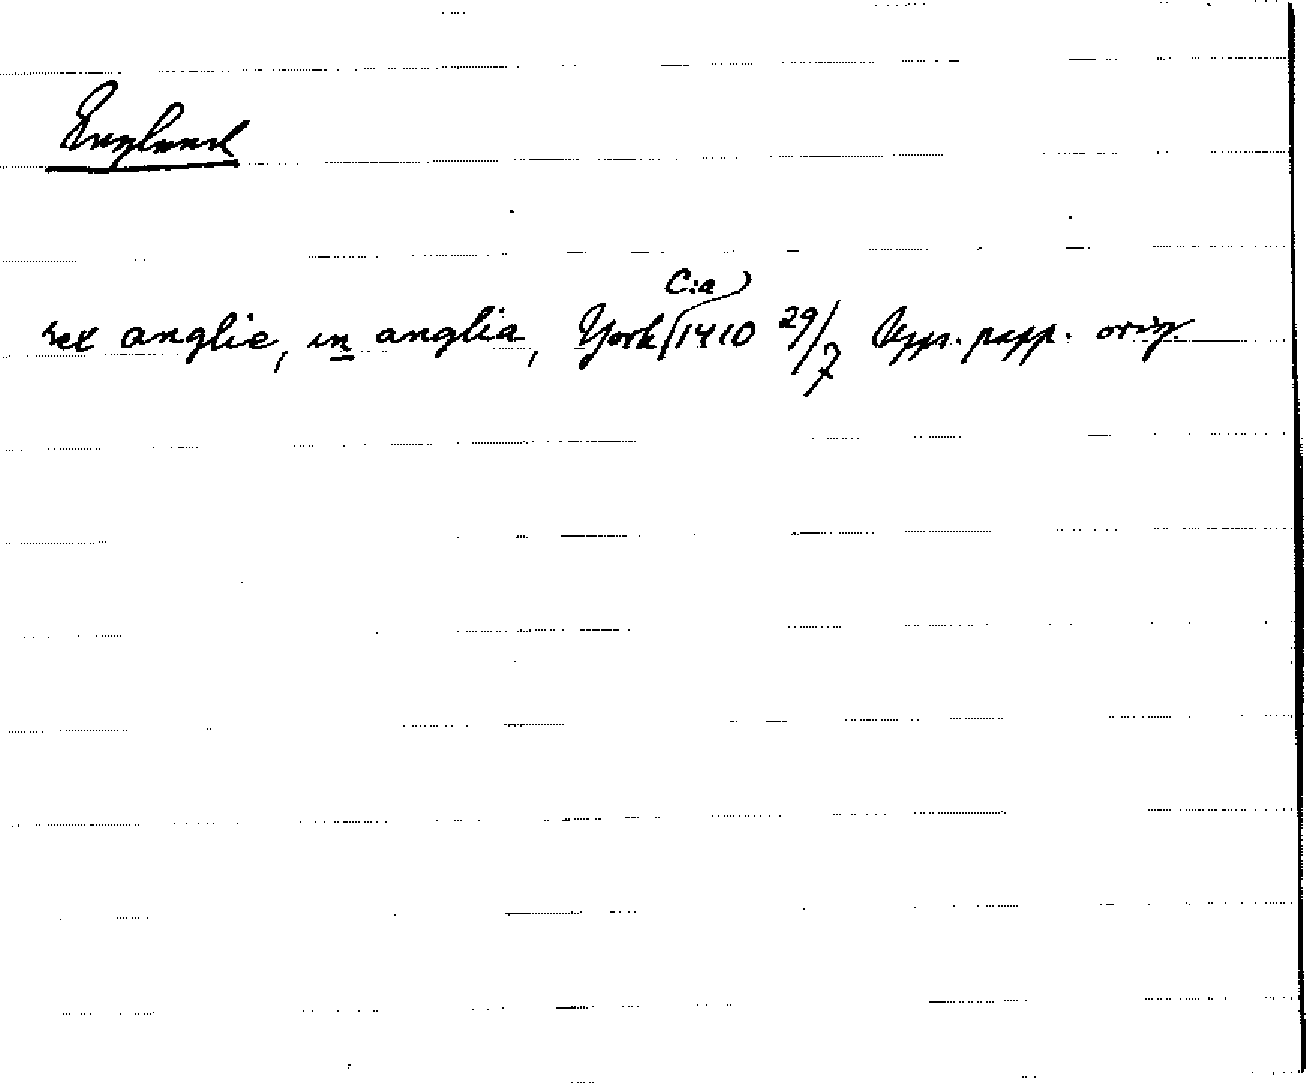 England
rex anglie, in anglia, York (C:a) 1410 29/7 Upps. papp. orig.